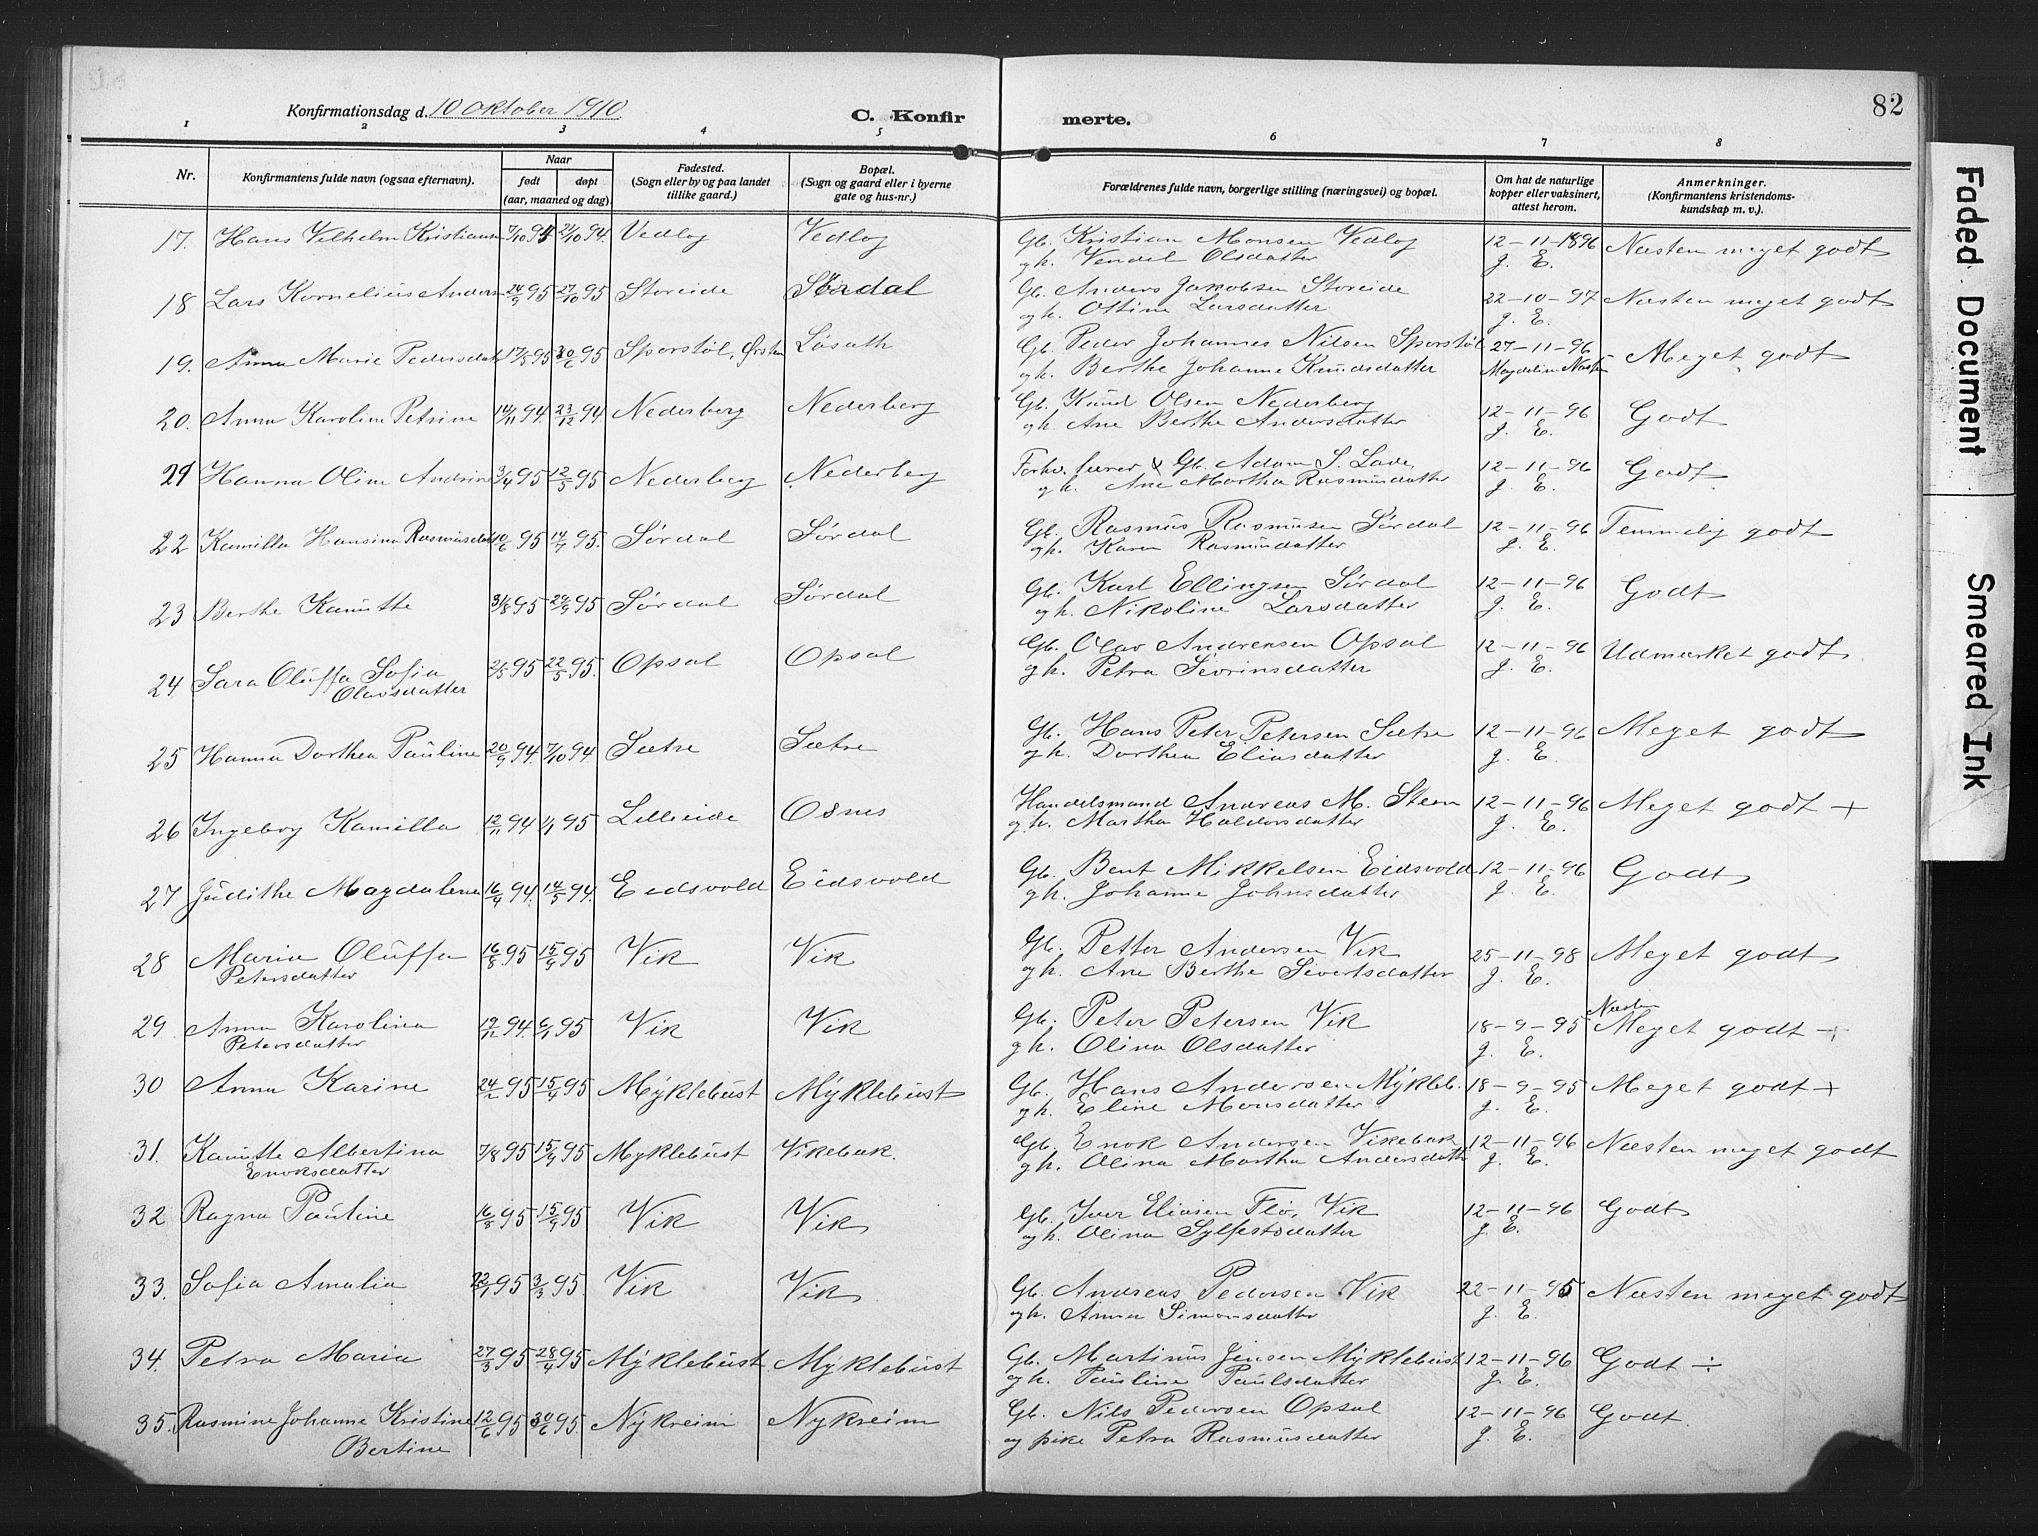 82
Konfirmationsdag d. 10 Oktober 1910
C. Konfirmerte.
1 2 3 4 5 6 7 8
Nr.
Konfirmantens fulde navn (ogsaa efternavn).
Naar
født døpt
(aar, maaned og dag).
Fødested.
(Sogn eller by og paa landet
tillike gaard.)
Bopæl.
(Sogn og gaard eller i byerne
gate og hus-nr.)
Forældrenes fulde navn, borgerlige stilling (næringsvei) og bopæl.
Om hat de naturlige
kopper eller vaksinert,
attest herom.
Anmerkninger.
(Konfirmantens kristendoms-
kundskap m. v.).
17. Hans Vilhelm Kristiansen 7/10 94 21/10 94. Vedlog Vedlog Gb. Kristian Monsen Vedlog 12-11-1896 Næsten meget godt
og h. Vendel Olsdatter J. E.
18 Lars Kornelius Anders 24/9 95 27/10 95 Storeide Sørdal Gb. Anders Jakobsen Storeide 22-10-97 Næsten meget godt
og h. Ottine Larsdatter J. E.
19. Anna Marie Pedersdatt 17/5 95 30/6 95 Sporstøl, Ørsten Løsæth Gb. Peder Johannes Nilsen Sporstøl 27-11-96 Meget godt
og h. Berthe Johanne Knudsdatter Magdeline
20. Anna Karoline Petrine 14/11 94. 23/12 94. Nederberg Nederberg Gb. Knud Olsen Nederberg 12-11-96 Godt
og h. Ane Berthe Andersdatter J. E.
21 Hanna Oline Andrine 3/4 95 12/5 95 Nederberg Nederberg Forhv. lærer & Gb. Adam S. Lade, 12-11-96 Godt
og h. Ane Martha Rasmusdatter J. E.
22 Kamilla Hansina Rasmusdatt 10/6 95 14/7 95. Sørdal Sørdal Gb. Rasmus Rasmusen Sørdal 12-11-96 Temmelig godt
og h. Karen Rasmusdatter J. E.
23 Berthe Kamitte 31/8 95 29/9 95 Sørdal Sørdal Gb. Karl Ellingsen Sørdal 12-11-96 Godt
og h. Nikoline Larsdatter J. E.
24 Sara Oluffa Sofia 2/5 95 22/5 95. Opsal Opsal Gb. Olav Andreasen Opsal 12-11-96 Udmærket godt
Olavsdatter og h. Petra Sevrinsdatter J. E.
25 Hanna Dorthea Pauline 20/9 94. 7/10 94. Sætre Sætre Gb. Hans Peter Petersen Sætre 12-11-96 Meget godt
og h. Dorthea Eliasdatter J. E.
26 Ingeborg Kamilla 12/11 94 1/1 95 Lilleeide Osnes Handelsmand Andreas M. Steen 12-11-96 Meget godt +
og h. Martha Haldorsdatter J. E.
27 Judithe Magdalena 16/4 94. 14/5 94. Eidsvold Eidsvold Gb. Bent Mikkelsen Eidsvold 12-11-96 Godt
og h. Johanne Johnsdatter J. E.
28 Maria Oluffa 16/8 95 15/9 95 Vik Vik Gb. Petter Andersen Vik 25-11-98 Meget godt
Petersdatter og h. Ane Berthe Sivertsdatter J. E.
29 Anna Karolina 19/12 94. 6/1 95 Vik Vik Gb. Peter Petersen Vik 18-9-95 Næsten Meget godt +
Petersdatter og h. Olina Olsdatter J. E.
30 Anna Karine 24/2 95 15/4 95 Myklebust Myklebust Gb. Hans Andersen Mykleb. 18-9-95 Meget godt +
og h. Eline Monsdatter J. E.
31. Kamitte Albertina 7/8 95 15/9 95 Myklebust Vikebak. Gb. Enok Andersen Vikebak 12-11-96 Næsten meget godt
Enoksdatter og h. Olina Martha Andersdatt J. E.
32 Ragna Pauline 16/8 95 15/9 95 Vik Vik Gb. Iver Eliasen Flø, Vik 12-11-96 Godt
og h. Olina Sylfestsdatter J. E.
33. Sofia Amalia 22/1 95 3/3 95. Vik Vik Gb. Andreas Pedersen Vik 22-11-95 Næsten meget godt
og h. Anna Simonsdatter J. E.
34. Petra Maria 27/3 95 28/4 95 Myklebust Myklebust Gb. Martinus Jensen Myklebust 12-11-96 Godt ÷
og h. Pauline Paulsdatter J. E.
35. Rasmine Johanne Kristine 12/6 95 30/6 95. Nykreim Nykreim Gb. Nils Pedersen Opsal 12-11-96 Godt.
Bertine og pike Petra Rasmusdatter J. E.
Faded Document
Smeared Ink